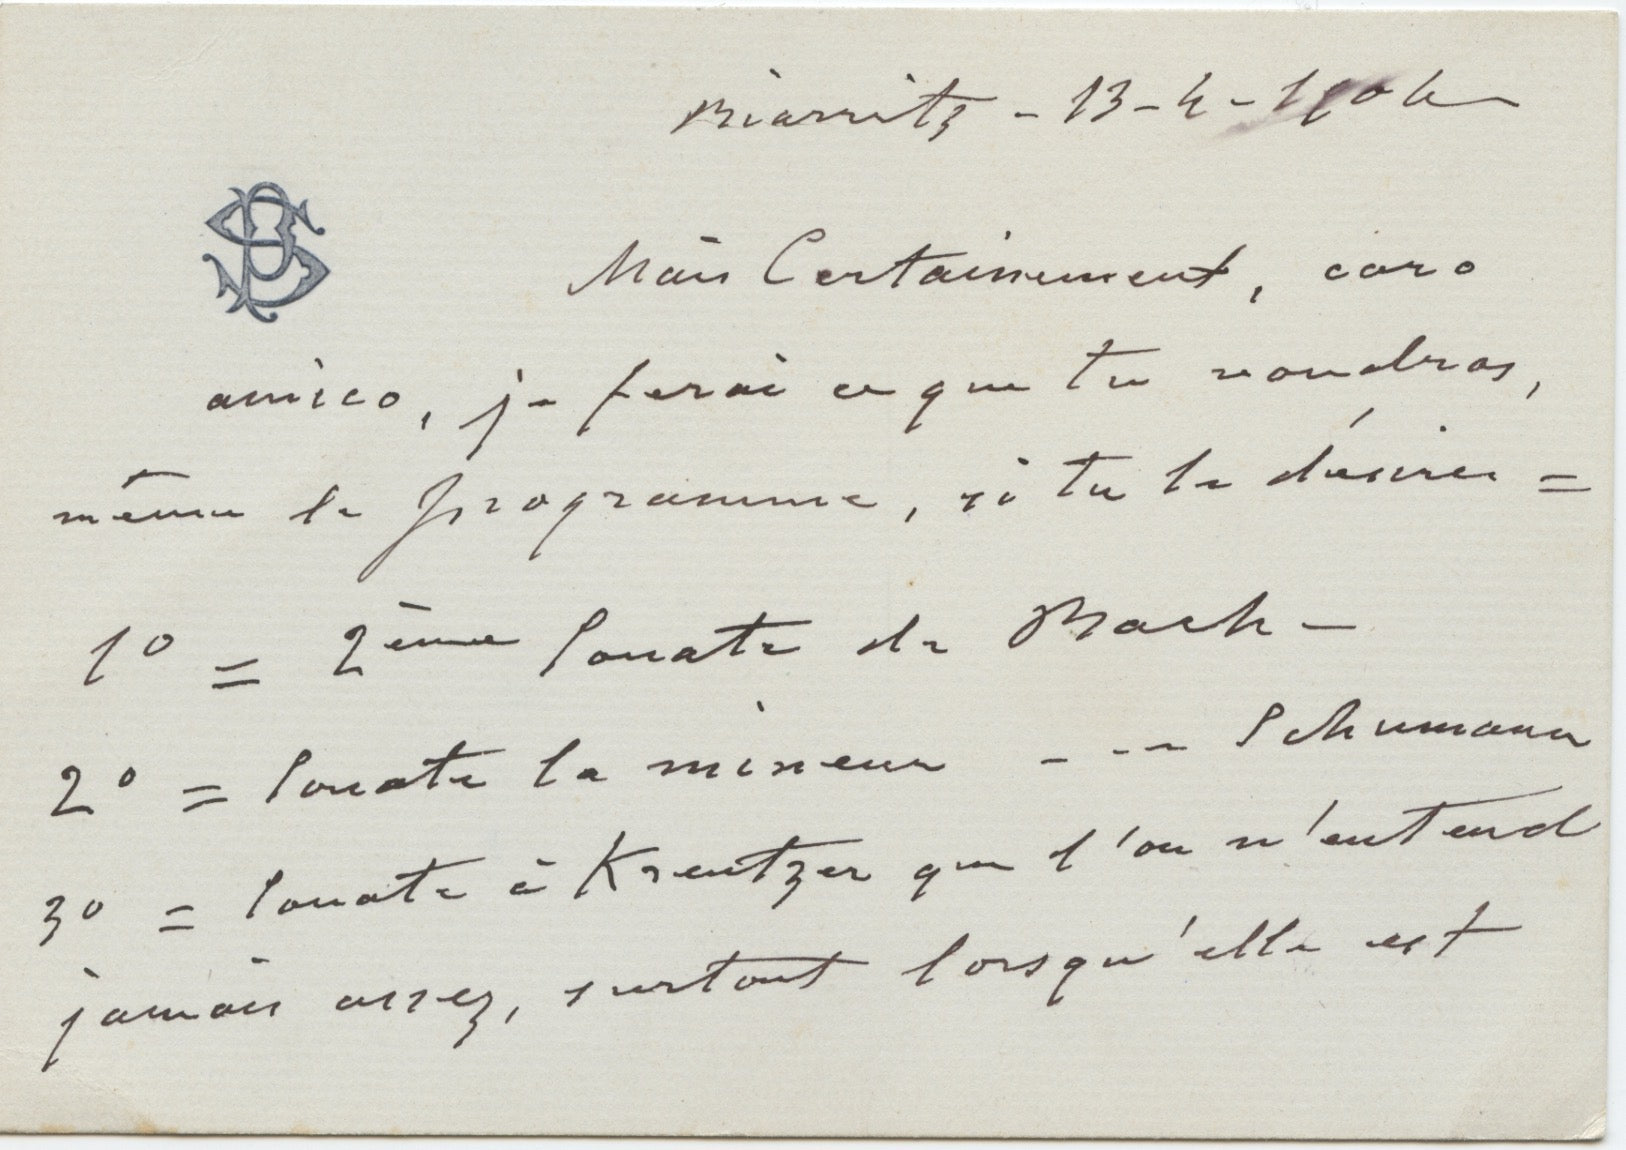 Biarritz - 13-4-1904
BS
Mais Certainement, caro
amico, je ferai ce que tu voudras,
même le programme, si tu le désires =
1º = 2ème Sonate de Bach -
2º = Sonate la mineur - -- Schumann
3º = Sonate à Kreutzer que l'on n'entend
jamais assez, surtout lorsqu'elle est